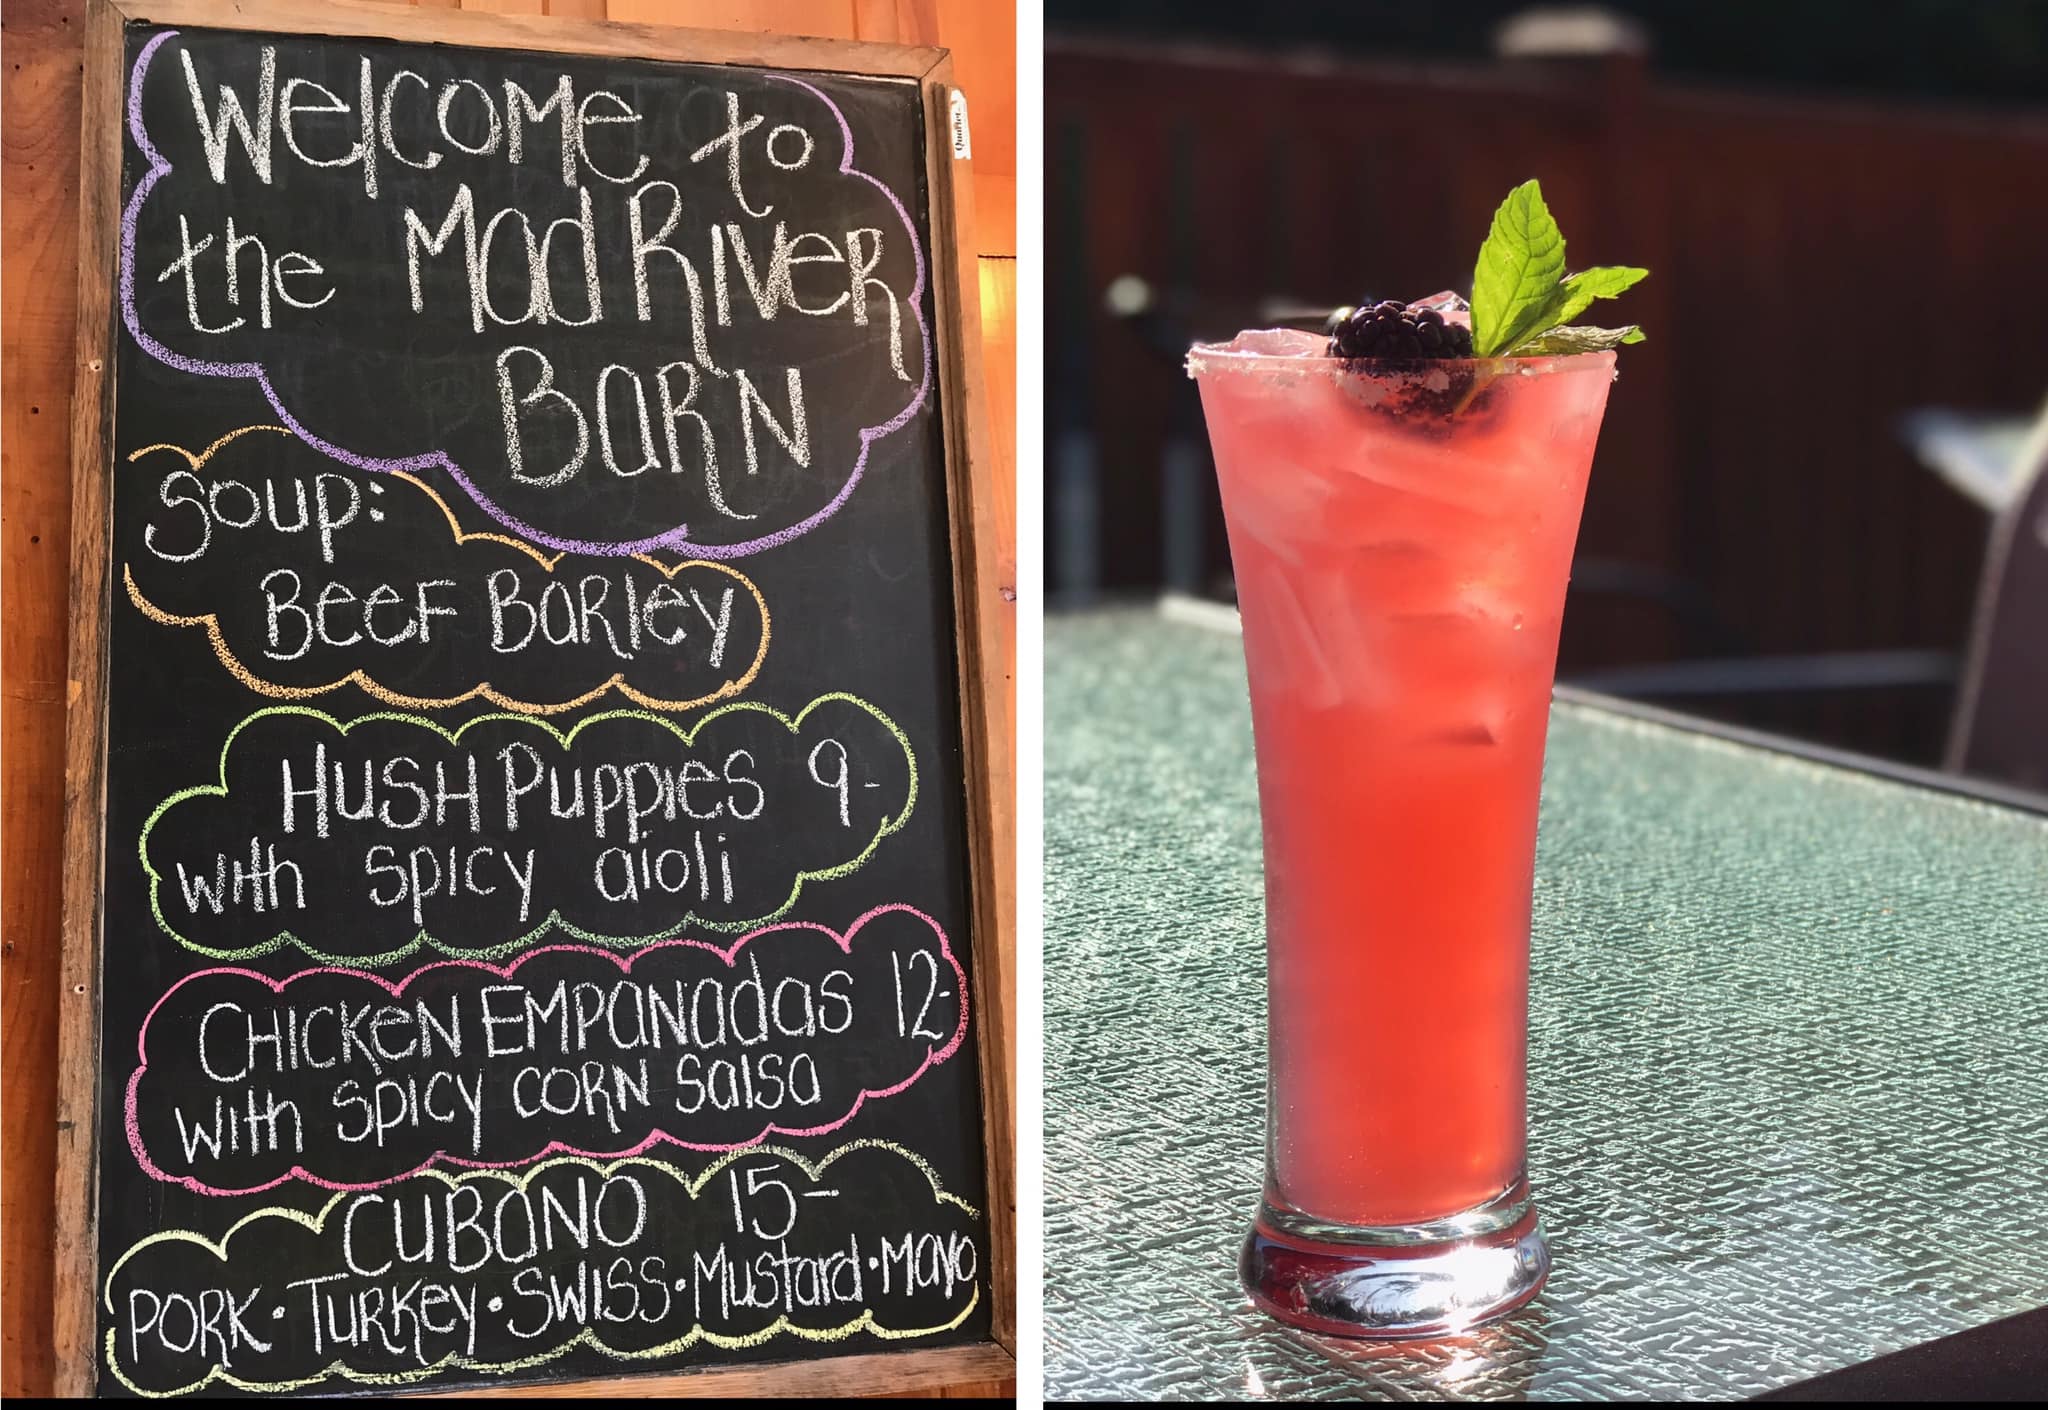 Welcome to
the Mad River
Barn
Soup:
Beef Barley
Hush Puppies 9-
with spicy aioli
Chicken Empanadas 12-
with spicy corn salsa
Cubano 15-
Pork • Turkey • Swiss • Mustard • Mayo
Quartet